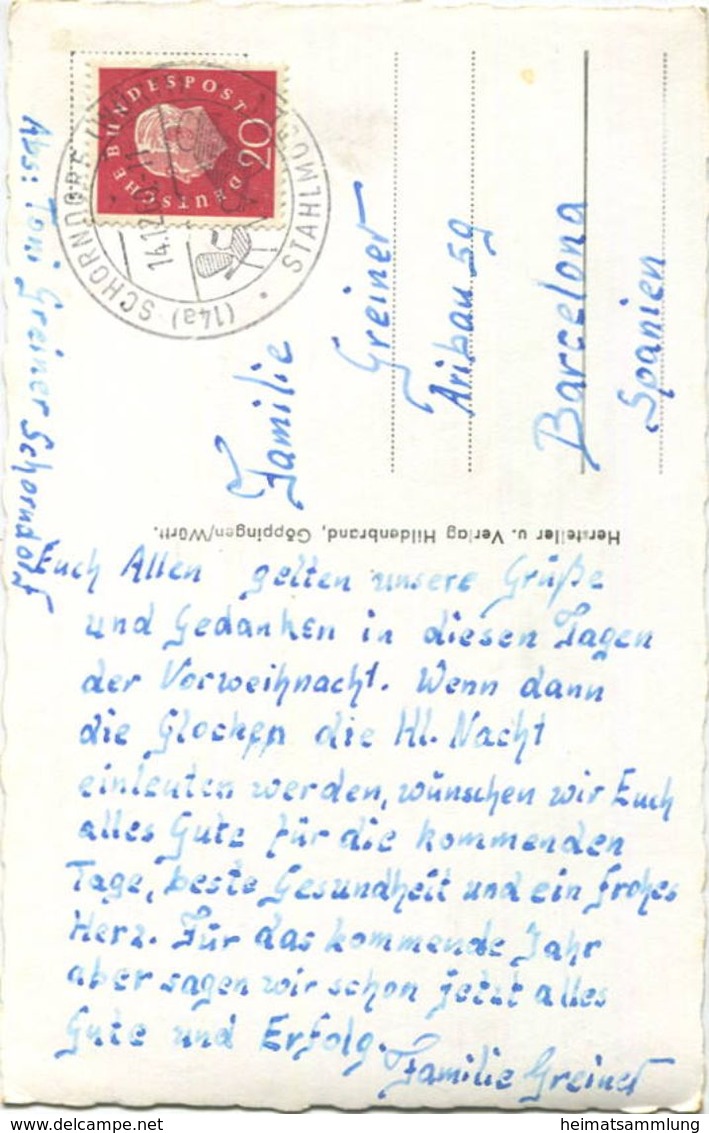 DEUTSCHE BUNDESPOST
20
(14a) SCHORNDORF
14.12.
STAHLMÖBEL
Abs: Toni Greiner Schorndorf
Familie
Greiner
Aribau 59
Barcelona
Spanien
Hersteller u. Verlag Hildenbrand, Göppingen/Württ.
Euch Allen gelten unsere Grüße
und Gedanken in diesen Tagen
der Vorweihnacht. Wenn dann
die Glocken die Hl. Nacht
einleuten werden, wünschen wir Euch
alles Gute für die kommenden
Tage, beste Gesundheit und ein frohes
Herz. Für das kommende Jahr
aber sagen wir schon jetzt alles
Gute und Erfolg.
Familie Greiner
heimatsammlung